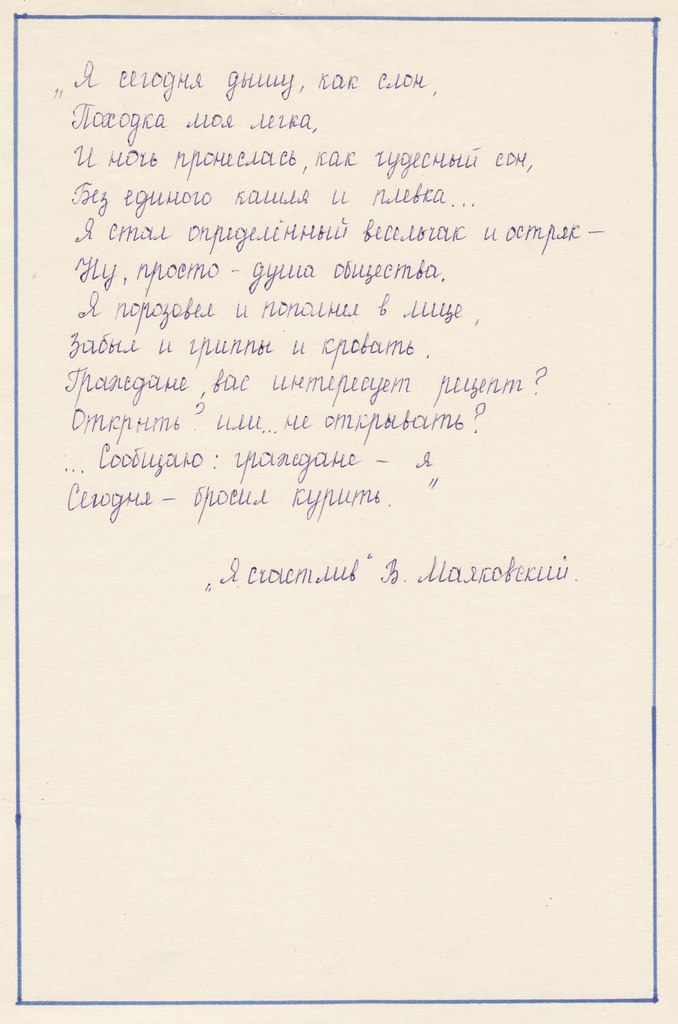 „Я сегодня дышу, как слон,
Походка моя легка,
И ночь пронеслась, как чудесный сон,
Без единого кашля и плевка...
Я стал определённый весельчак и остряк –
Ну, просто – душа общества.
Я порозовел и пополнел в лице,
Забыл и гриппы и кровать.
Граждане, вас интересует рецепт?
Открыть? или... не открывать?
... Сообщаю: граждане – я
Сегодня – бросил курить."
„Я счастлив" В. Маяковский.